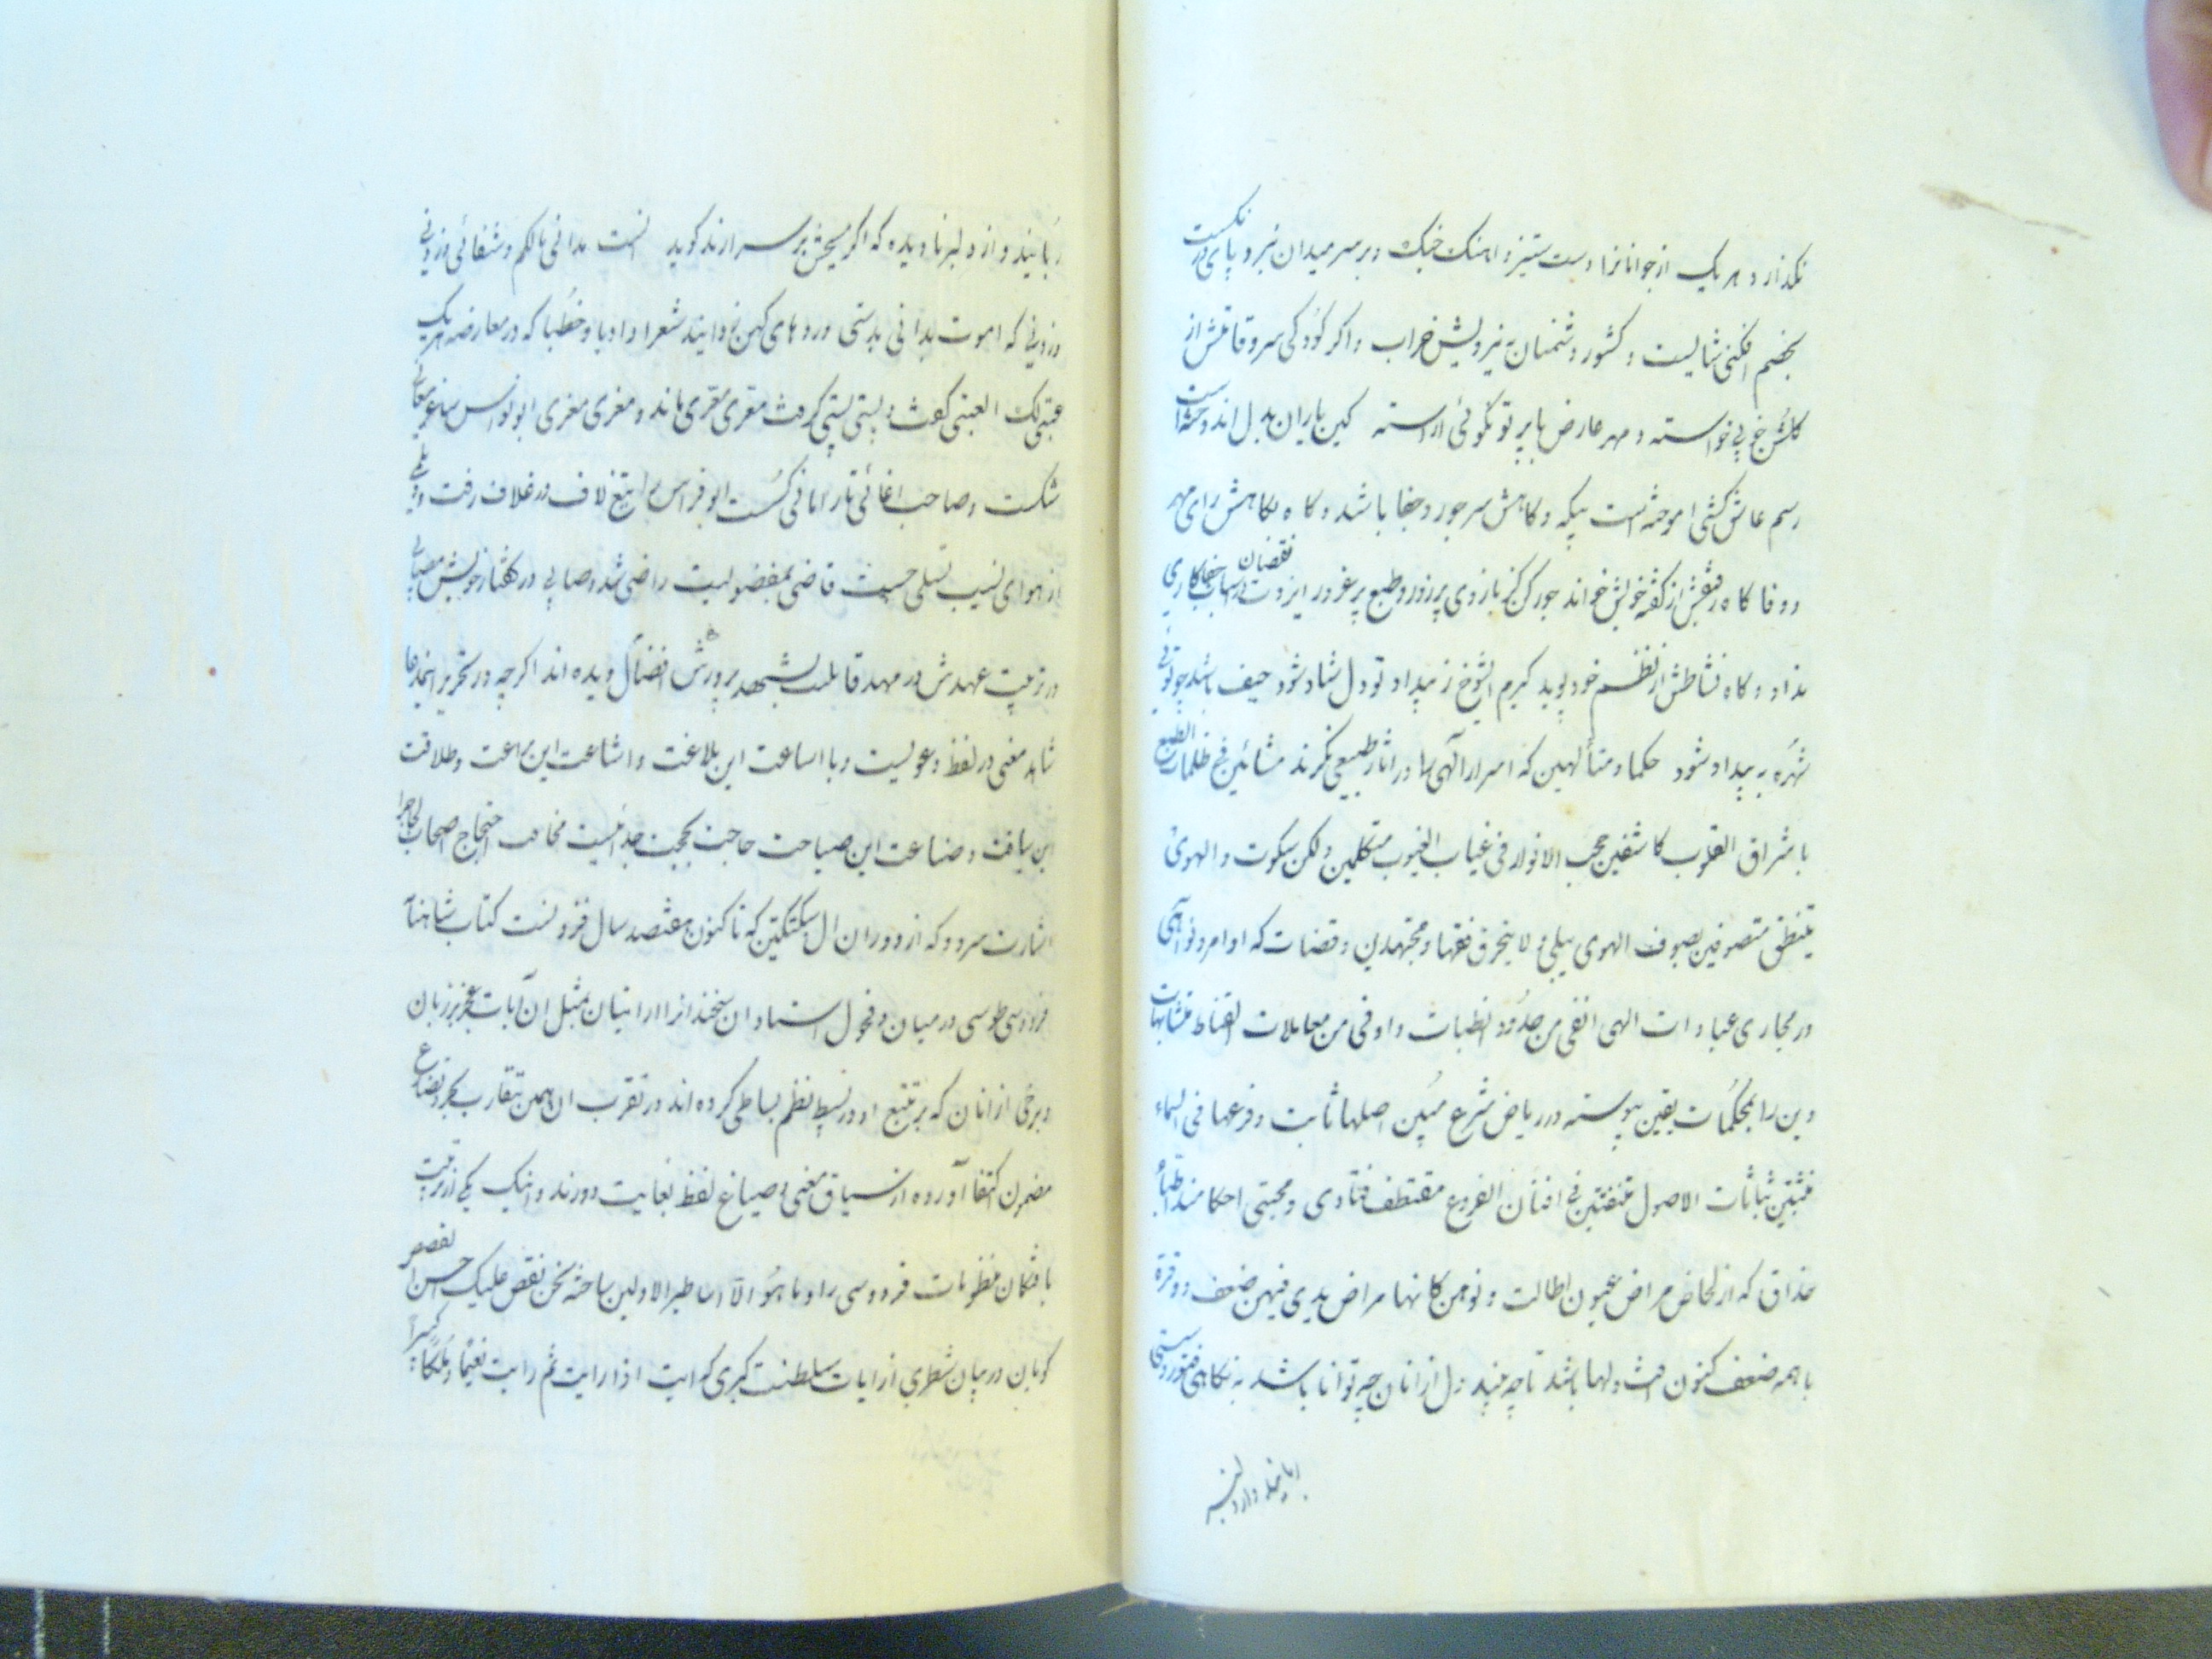 نکذارد هر یک از جوانانرا دست ستیز و اهنک جنک و بر سر میدان نبرد پای در نکست
بخصم افکنی شالیست و کشور دشمنان به نیرویش خراب و اکر کودکی سرو قامتش از
کلشن خوبی خواسته و مهر عارض با پرتو نکوئی اراسته کین یاران بدل اندوخته است
رسم عاشق کشی اموخته است بیکه و کاهش سر جور و جفا باشد و کاه بکاهش رای مهر
و وفا کاه رفقش از کفته خویش خواند جور کن کز بازوی پر زور و طبع پر غرور ایزدت اسباب جفاکاری نقصان
نداد و کاه نشاطش از نظم خود پوید کیرم ایشوخ ز بیداد تو دل شاد شود حیف باشد چو توئی
شهره به بیداد شود حکما و متألهین که اسرار الهی را در اثار طبیعی نکرند مشائین فی ظلمات الطبع
باشراق القلوب کاشفین حجب الانوار فی غیاب الغیوب متکلمین ولکن سکوت والهوی
یتنطق متصوفین بصوف الهوی یبلی و لا ینخرق فقها و مجتهدین و قضات که اوامر و نواهی
در مجاری عبادات الهی انفی من حدود الظبات و اوفی من معاملات القناط متشابهات
دین را بمحکمات یقین پیوسته در ریاض شرع مبین اصلها ثابت و فرعها فی السماء
مثبتین ثباثات الاصول متفننین فی افنان الفروع مقتطف فتاوی و مجتنی احکامند اطباء
حذاق که از لحاض مراض عیون اطالت و نوهن کانها مراض بدی فیهن ضعف و وقرة
با همه ضعف کنون افت دلها باشد تا چه بیند دل از انان چه توانا باشد به نکاهی فتور و سستی
ربایند و از دلبر
ربایند و از دلبر نادیده که اکر مسیحش بر سر ارند کوید نست مدانی بالکم و شفائی وزونی
وزونی که اموت بدائی بدستی دردهای کهن زدایند شعرا و ادبا و خطبا که در معارضه هر یک
عتبی لک العتبی کفت و بستی پستی کرفت مقری مقری ماند و مغری مغری ابونواس ساغر معانی
شکست و صاحب اغانی تار امانی کسست ابوفراس را تیغ لاف در غلاف رفت و دیلمی
از هوای نسیب تسلی جست قاضی بمفضولیت راضی شد و صابی در کفتار خویش مصابی
در تربیت عهدش در مهد قابلیت شهد پرورش افضال دیده اند اکر چه در تحریر اینمدعا
شاهد معنی در لفظ دعویست و با اساعت این بلاغت و اشاعت این براعت و طلاقت
این بیاقت و ضاعت این صباحت حاجت بحجت جدا نیست مخافت احتجاج اصحاب لجاج را
اشارت سرود که از دوران ال سبکتکین که تا کنون هفتصد سال فزونست کتاب شاهنامه
فردوسی طوسی در میان و فحول استادان سخندانرا از اتیان بمثل ان آیات عجز بر زبان
و برخی از انان که بر تتبع او در بسیط نظم بساطی کرده اند در تقرب ان همین تقارب بحر و تضارع
مضمون اکتفا آورده از سیاق معنی و صیاغ لفظ بغایت دورند و اینک یکی از تربیت
یافتکان منظومات فردوسی را و ما هو الا اساطیر الاولین ساخته نحن نقص علیک احسن القصص
کویان در بیان شطری از ایات سلطنت کبری که ایت اذا رایت ثم رایت نعیما و ملکا کبیرا